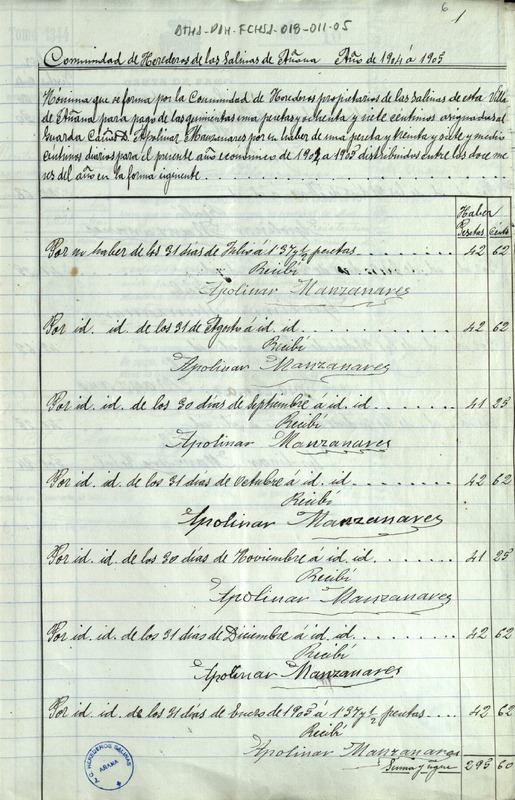 ATHA-DAH-FCHSA-018-011-05
6
1
Comunidad de Herederos de las Salinas de Añana Año de 1904 á 1905
Nómina que se forma por la Comunidad de Herederos propietarios de las Salinas de esta Villa
de Añana para pago de las quinientas una pesetas y ochenta y siete centimos asignadas al
Guarda Cañas D. Apolinar Manzanares por su haber de una peseta y treinta y siete y medio
centimos diarios para el presente año economico de 1904 a 1905 distribuidas entre los doce me
ses del año en la forma siguiente
Haber
Pesetas Cénts
Por su haber de los 31 dias de Julio á 1'37 y ½ pesetas 42 62
Recibí
Apolinar Manzanares
Por id. id. de los 31 de Agosto á id. id. 42 62
Recibí
Apolinar Manzanares
Por id. id. de los 30 dias de Septiembre á id. id 41 25
Recibí
Apolinar Manzanares
Por id. id. de los 31 dias de Octubre á id. id. 42 62
Recibí
Apolinar Manzanares
Por id. id. de los 30 dias de Noviembre á id. id. 41 25
Recibí
Apolinar Manzanares
Por id. id. de los 31 dias de Diciembre á id. id. 42 62
Recibí
Apolinar Manzanares
Por id. id. de los 31 dias de Enero de 1905 á 1'37 y ½ pesetas 42 62
Recibí
Apolinar Manzanares
Suma y sigue 295 60
HEREDEROS SALINAS
AÑANA